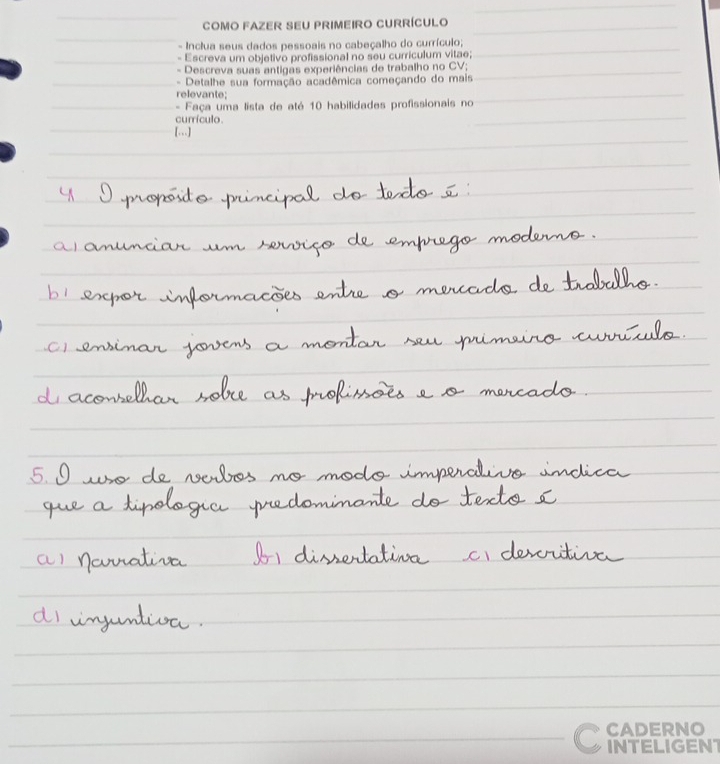 COMO FAZER SEU PRIMEIRO CURRÍCULO
- Inclua seus dados pessoais no cabeçalho do currículo;
- Escreva um objetivo profissional no seu curriculum vitae;
- Descreva suas antigas experiências de trabalho no CV;
- Detalhe sua formação acadêmica começando do mais
relevante;
- Faça uma lista de até 10 habilidades profissionais no
currículo.
[...]
4) O propósito principal do texto é:
a) anunciar um serviço de emprego moderno.
b) expor informacões entre o mercado de trabalho.
c) ensinar jovens a montar seu primeiro currículo.
d) aconselhar sobre as profissões e o mercado.
5. O uso de verbos no modo imperativo indica
que a tipologia predominante do texto é
a) narrativa b) dissertativa c) descritiva
d) injuntiva.
CADERNO
INTELIGENT